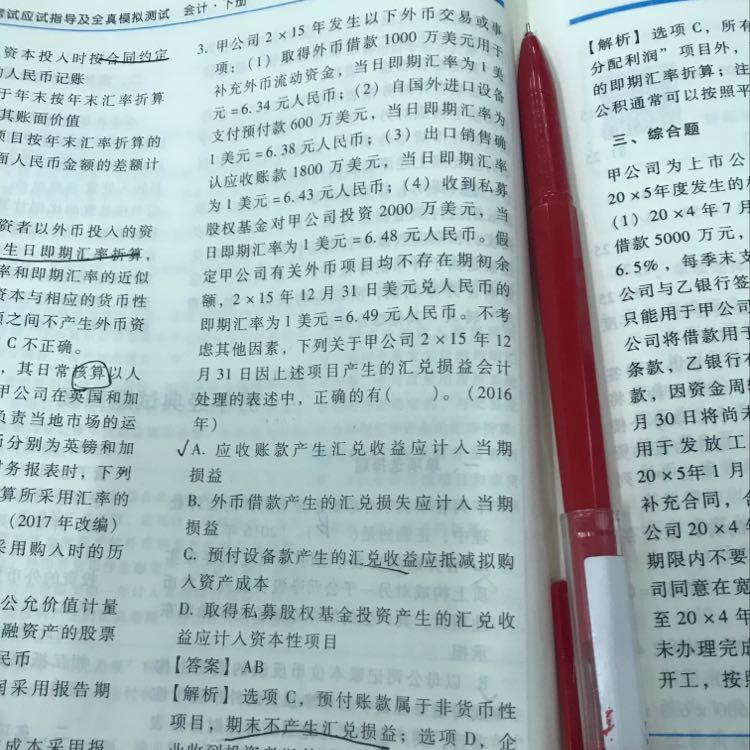 考试应试指导及全真模拟测试 会计·下册
资本投入时按合同约定
人民币记账
于年末按年末汇率折算
其账面价值
项目按年末汇率折算的
面人民币金额的差额计
资者以外币投入的资
生日即期汇率折算,
率和即期汇率的近似
资本与相应的货币性
之间不产生外币资
C不正确。
,其日常核算以人
甲公司在英国和加
负责当地市场的运
币分别为英镑和加
财务报表时,下列
算所采用汇率的
(2017年改编)
采用购入时的历
公允价值计量
融资产的股票
民币
采用报告期
成本采用报
3. 甲公司2×15年发生以下外币交易或事
项:(1)取得外币借款1000万美元用于
补充外币流动资金,当日即期汇率为1美
元=6.34元人民币;(2)自国外进口设备
支付预付款600万美元,当日即期汇率为
1美元=6.38元人民币;(3)出口销售确
认应收账款1800万美元,当日即期汇率
为1美元=6.43元人民币;(4)收到私募
股权基金对甲公司投资2000万美元,当
日即期汇率为1美元=6.48元人民币。假
定甲公司有关外币项目均不存在期初余
额,2×15年12月31日美元兑人民币的
即期汇率为1美元=6.49元人民币。不考
虑其他因素,下列关于甲公司2×15年12
月31日因上述项目产生的汇兑损益会计
处理的表述中,正确的有( )。(2016
年)
A. 应收账款产生汇兑收益应计入当期
损益
B. 外币借款产生的汇兑损失应计入当期
损益
C. 预付设备款产生的汇兑收益应抵减拟购
入资产成本
D. 取得私募股权基金投资产生的汇兑收
益应计入资本性项目
【答案】AB
【解析】选项C,预付账款属于非货币性
项目,期末不产生汇兑损益;选项D,企
业收到投资者
【解析】选项C,所有
分配利润”项目外,
的即期汇率折算;注
公积通常可以按照平
三、综合题
甲公司为上市公
20×5年度发生的
(1)20×4年7月
借款5000万元,
6.5%,每季末支
公司与乙银行签
只能用于甲公司
公司将借款用于
条款,乙银行
款,因资金周转
月30日将尚未
用于发放工
20×5年1月
补充合同,
公司20×4年
期限内不要
司同意在宽
至20×4年
未办理完成
开工,按照